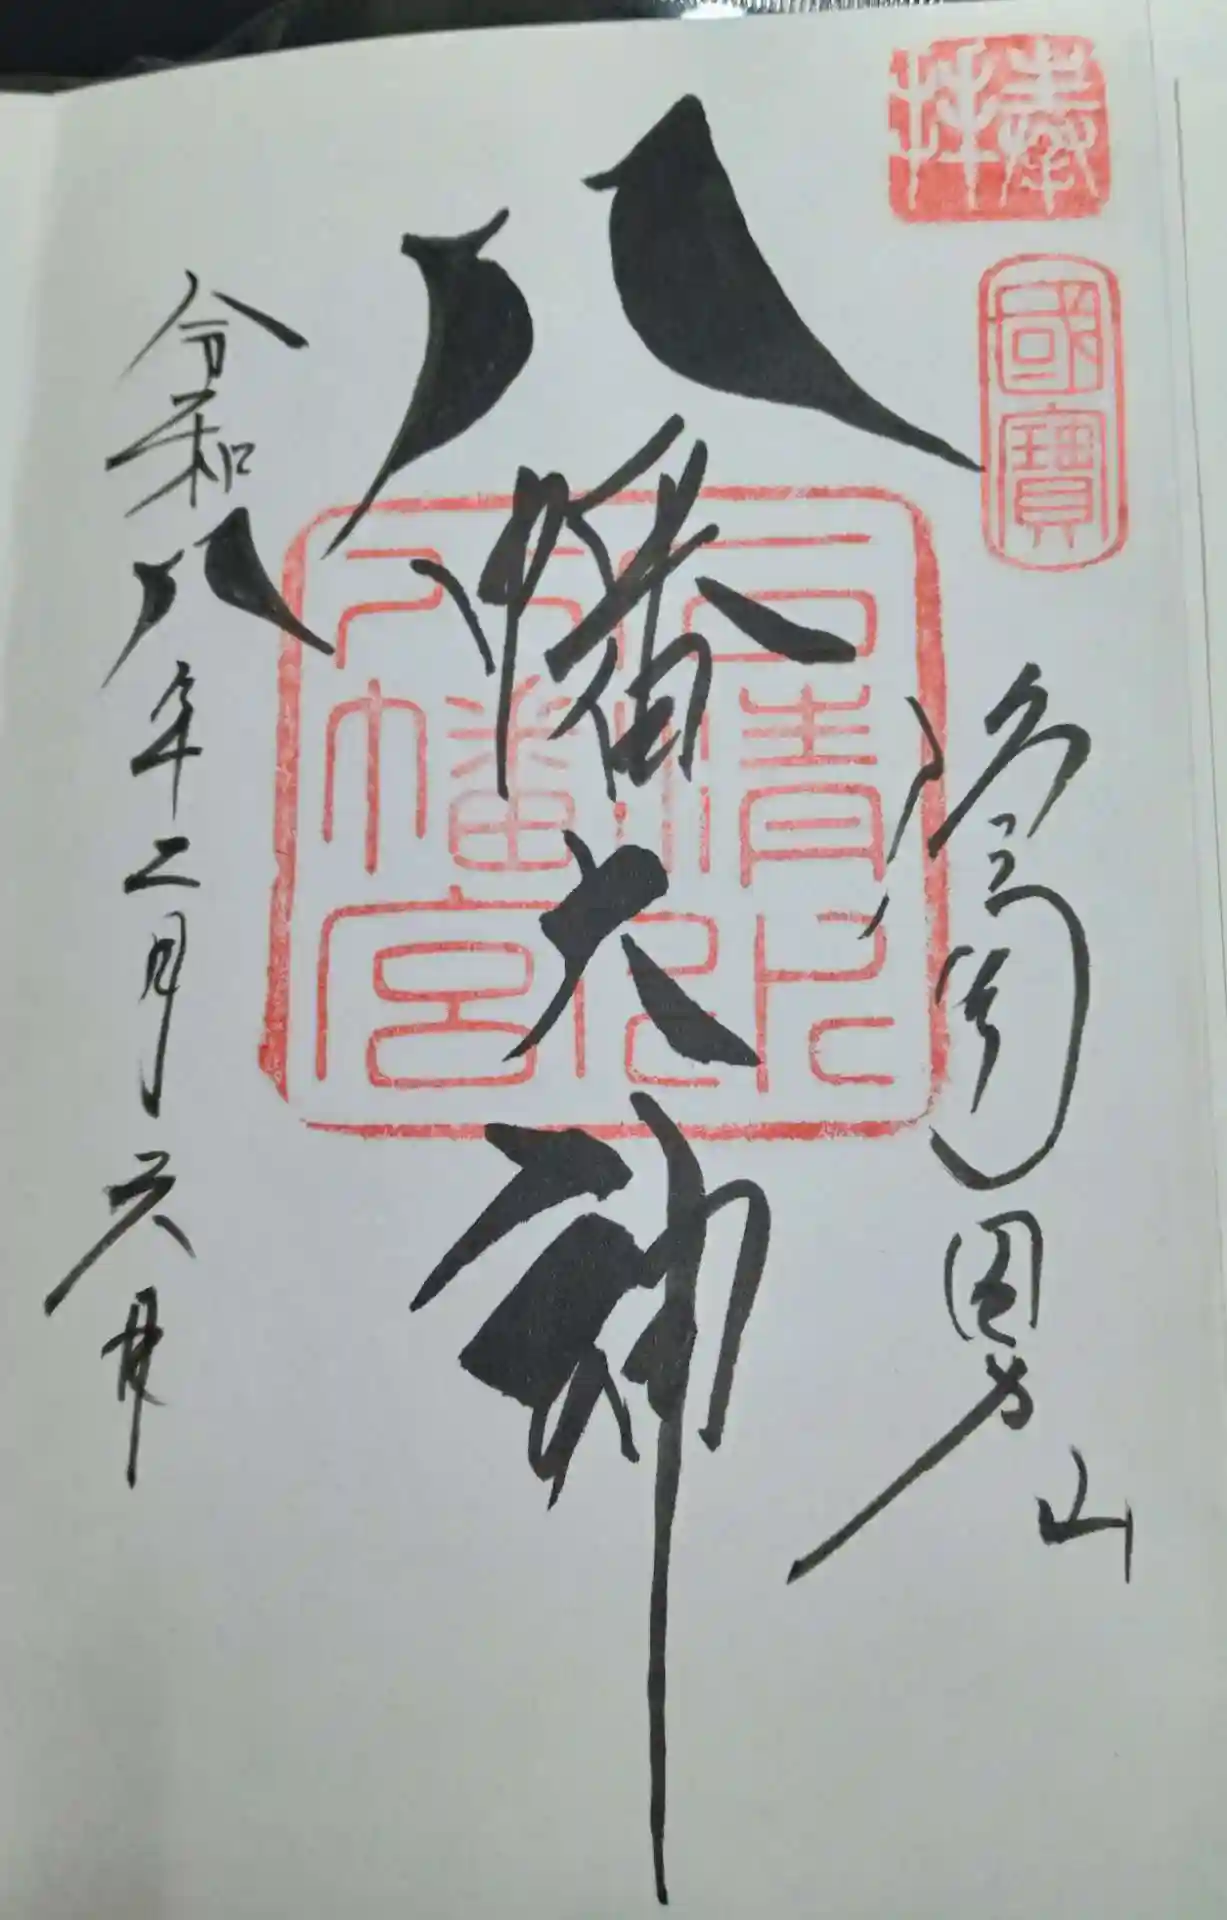 奉拝
國寶
洛南男山
八幡大神
石清水
八幡宮
令和八年二月六日